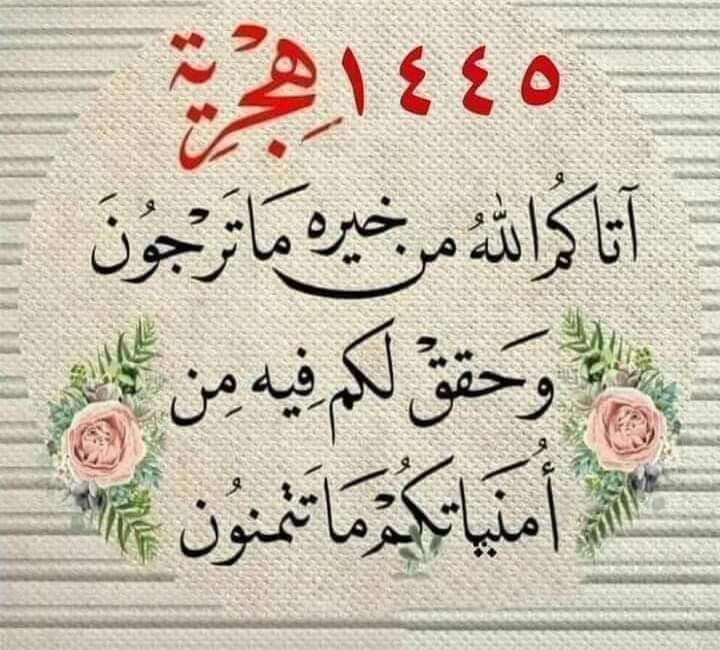 ١٤٤٥ هِجْرِية
آتَاكُمُ اللهُ من خيرِه مَا تَرْجُونَ
وَحَققْ لكم فِيه مِن
أُمنَيَاتكُمْ مَا تَتمنوُن